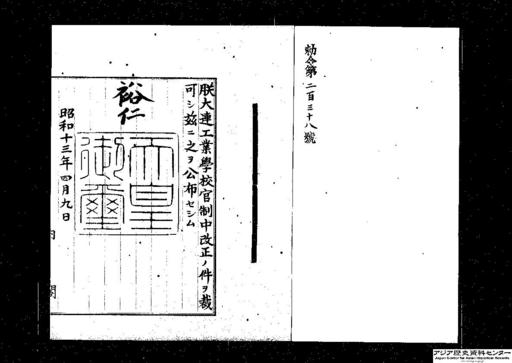 勅令第二百三十八號
朕大連工業學校官制中改正ノ件ヲ裁
可シ茲ニ之ヲ公布セシム
裕仁
天皇御璽
昭和十三年四月九日
内閣
アジア歴史資料センター
Japan Center for Asian Historical Records